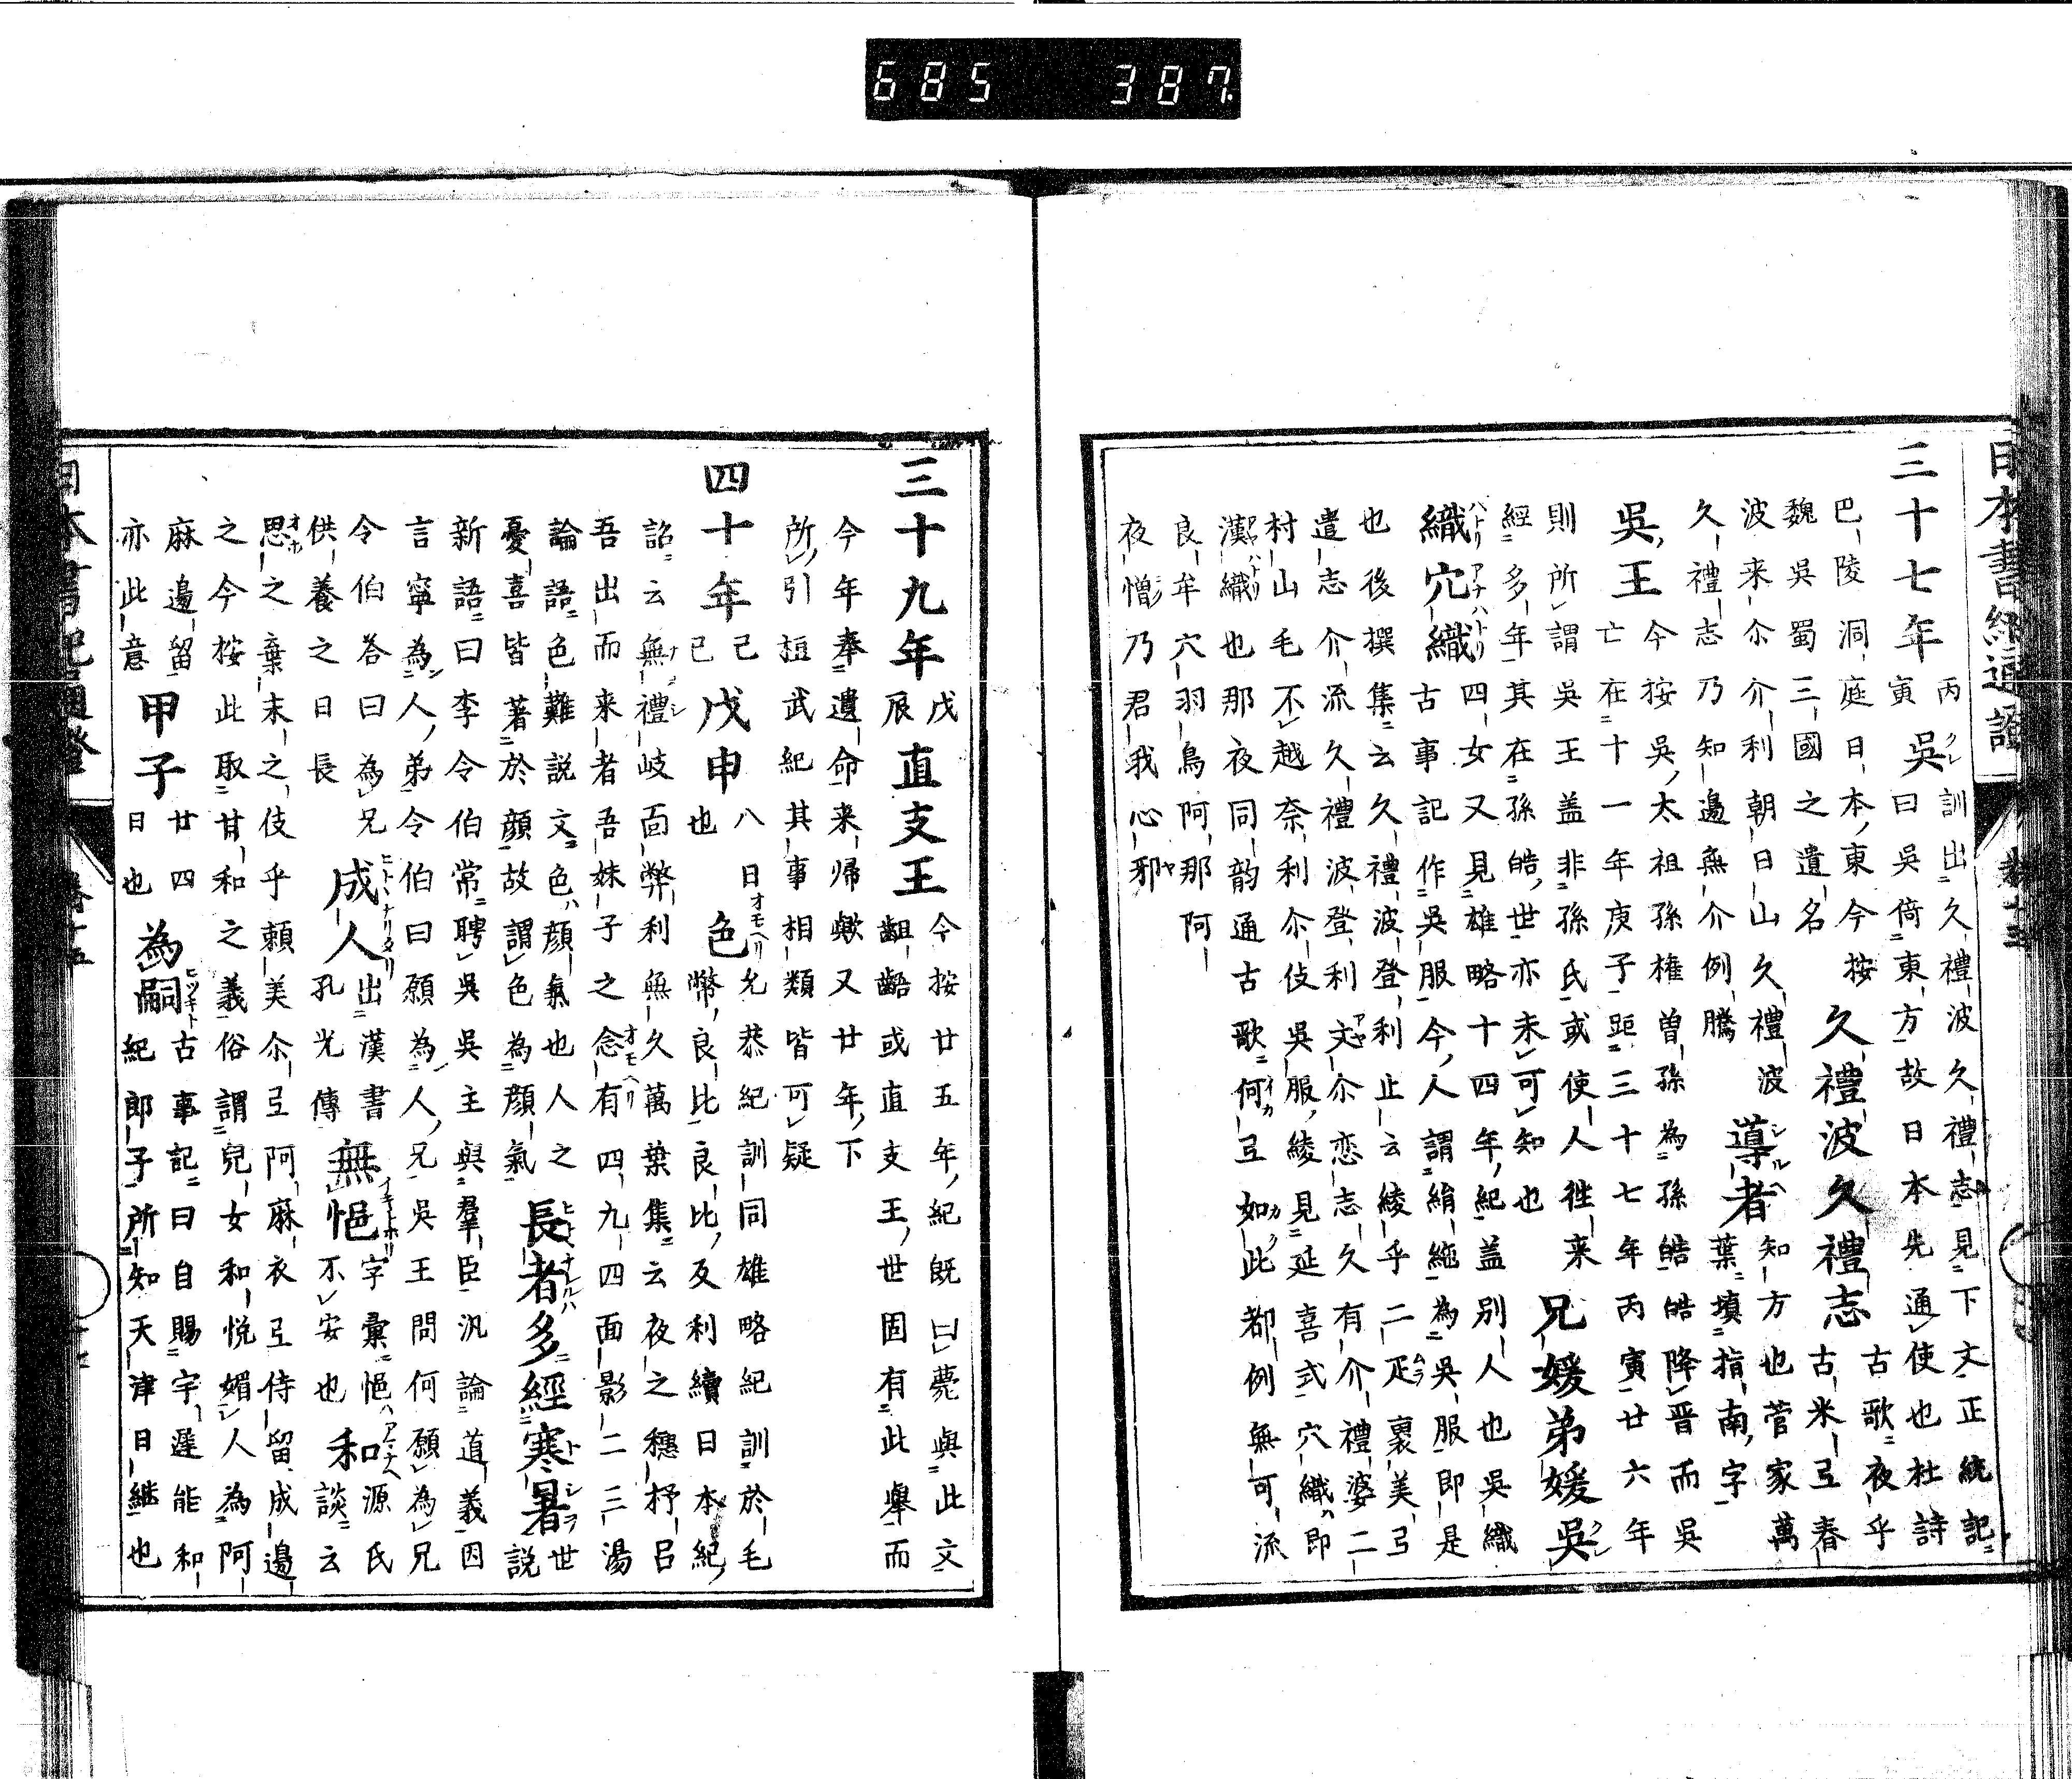 日本書紀通證 卷十五
三十七年丙寅 吳訓出久禮波久禮志見下文正統記
曰吳倚東方故日本先通使也杜詩
巴陵洞庭日本東今按
魏吳蜀三國之遺名 久禮波久禮志古歌夜乎
古米弖春
波来尒介利朝日山久禮波
久禮志乃知邊無介例騰 導者知方也菅家萬
葉墳指南字
吳王今按吳太祖孫權曽孫為孫皓皓降晋而吳
亡在十一年庚子距三十七年丙寅廿六年
則所謂吳王盖非孫氏或使人徃来
經多年其在孫皓世亦未可知也 兄媛弟媛吳
織穴織四女又見雄略十四年紀盖別人也吳織
古事記作吳服今人謂絹絁為吳服即是
也後撰集云久禮波登利止云綾乎二疋裹美弖
遣志介流久禮波登利文尒恋志久有介禮婆二
村山毛不越奈利尒伎吳服綾見延喜式穴織即
漢織也那夜同韵通古歌何弖如此都例無可流
良牟穴羽鳥阿那阿
夜憎乃君我心邪
三十九年戊辰 直支王今按廿五年紀既曰薨與此文
齟齬或直支王世固有此舉而
今年奉遺命来帰歟又廿年下
所引桓武紀其事相類皆可疑
四十年己巳 戊申八日也 色允恭紀訓同雄略紀訓於毛
幣良比良比反利續日本紀
詔云無禮岐面弊利無久萬葉集云夜之穗杼呂
吾出而来者吾妹子之念有四九四面影二三湯
論語色難説文色顔氣也人之
憂喜皆著於顔故謂色為顔氣 長者多經寒暑世說
新語曰李令伯常聘吳吳主與羣臣汎論道義因
言寧為人弟令伯曰願為人兄吳王問何願為兄
令伯荅曰為兄
供養之日長 成人出漢書孔光傳 無悒字彙悒不安也 和源氏談云
思之棄末之伎乎頼美尒弖阿麻衣弖侍留成邊
之今按此取甘和之義俗謂兒女和悅媚人為阿
麻邊留
亦此意 甲子廿四日也 為嗣古事記曰自賜宇遲能和
紀郎子所知天津日継也
日本書紀通證 卷十五
685 387